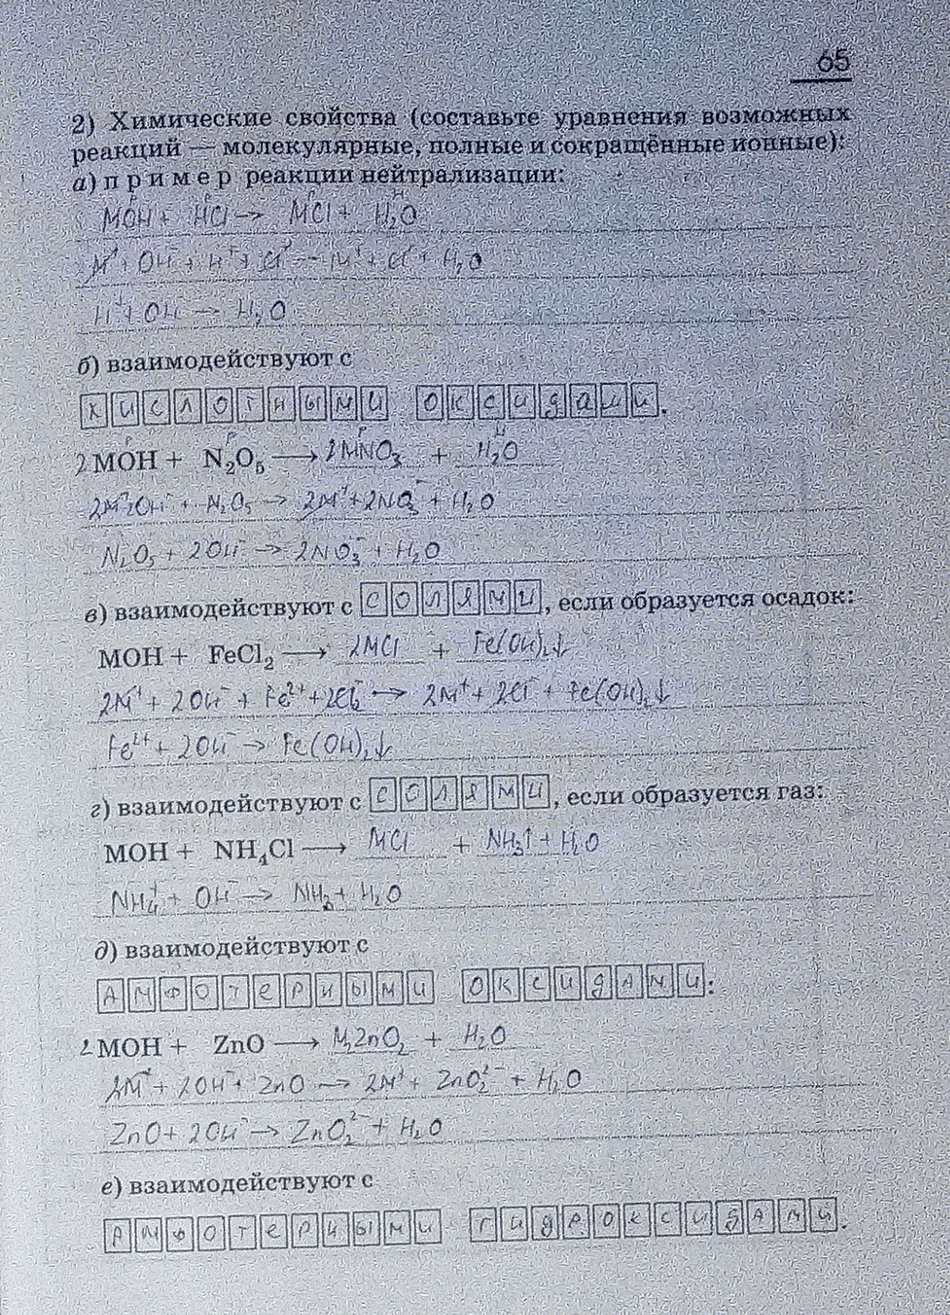 65
2) Химические свойства (составьте уравнения возможных
реакций — молекулярные, полные и сокращённые ионные):
а) пример реакции нейтрализации:
MOH + HCl → MCl + H₂O
M⁺ + OH⁻ + H⁺ + Cl⁻ → M⁺ + Cl⁻ + H₂O
H⁺ + OH⁻ → H₂O
б) взаимодействуют с
кислотными оксидами.
2MOH + N₂O₅ → 2MNO₃ + H₂O
2M⁺ 2OH⁻ + N₂O₅ → 2M⁺ + 2NO₃⁻ + H₂O
N₂O₅ + 2OH⁻ → 2NO₃⁻ + H₂O
в) взаимодействуют с солями, если образуется осадок:
MOH + FeCl₂ → 2MCl + Fe(OH)₂↓
2M⁺ + 2OH⁻ + Fe²⁺ + 2Cl⁻ → 2M⁺ + 2Cl⁻ + Fe(OH)₂↓
Fe²⁺ + 2OH⁻ → Fe(OH)₂↓
г) взаимодействуют с солями, если образуется газ:
MOH + NH₄Cl → MCl + NH₃↑ + H₂O
NH₄⁺ + OH⁻ → NH₃ + H₂O
д) взаимодействуют с
амфотерными оксидами:
2MOH + ZnO → M₂ZnO₂ + H₂O
2M⁺ + 2OH⁻ + ZnO → 2M⁺ + ZnO₂²⁻ + H₂O
ZnO + 2OH⁻ → ZnO₂²⁻ + H₂O
е) взаимодействуют с
амфотерными гидроксидами.